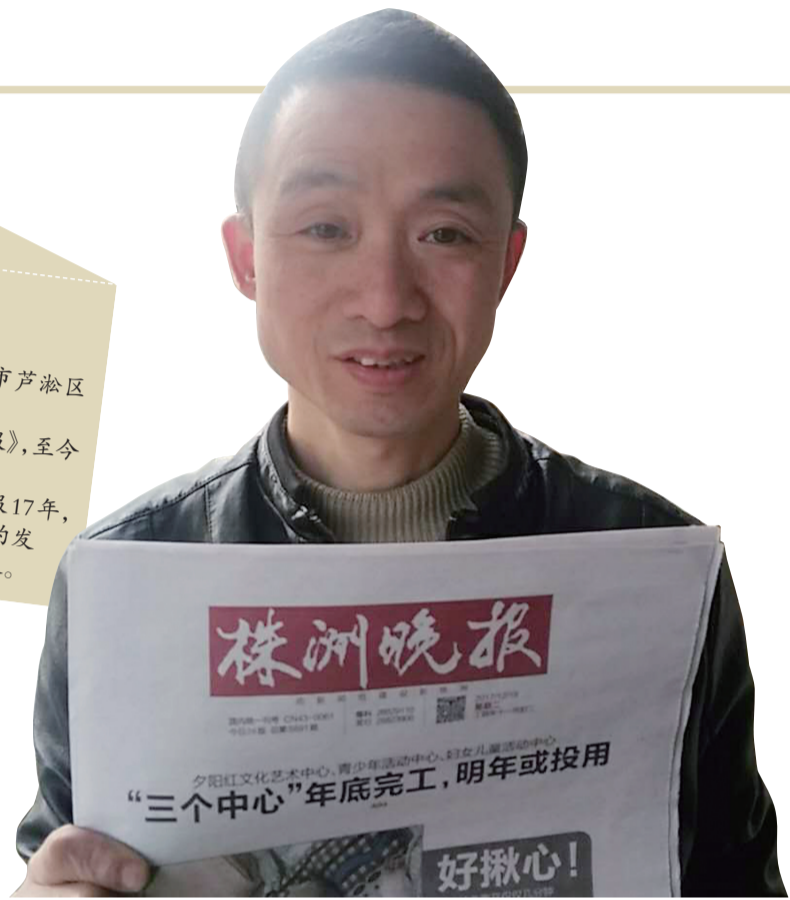 市芦淞区
》，至今
报17年，
的发
。
株洲晚报
国内统一刊号 CN43-0061
夕阳红文化艺术中心、青少年活动中心、妇女儿童活动中心
“三个中心”年底完工，明年或投用
好揪心！